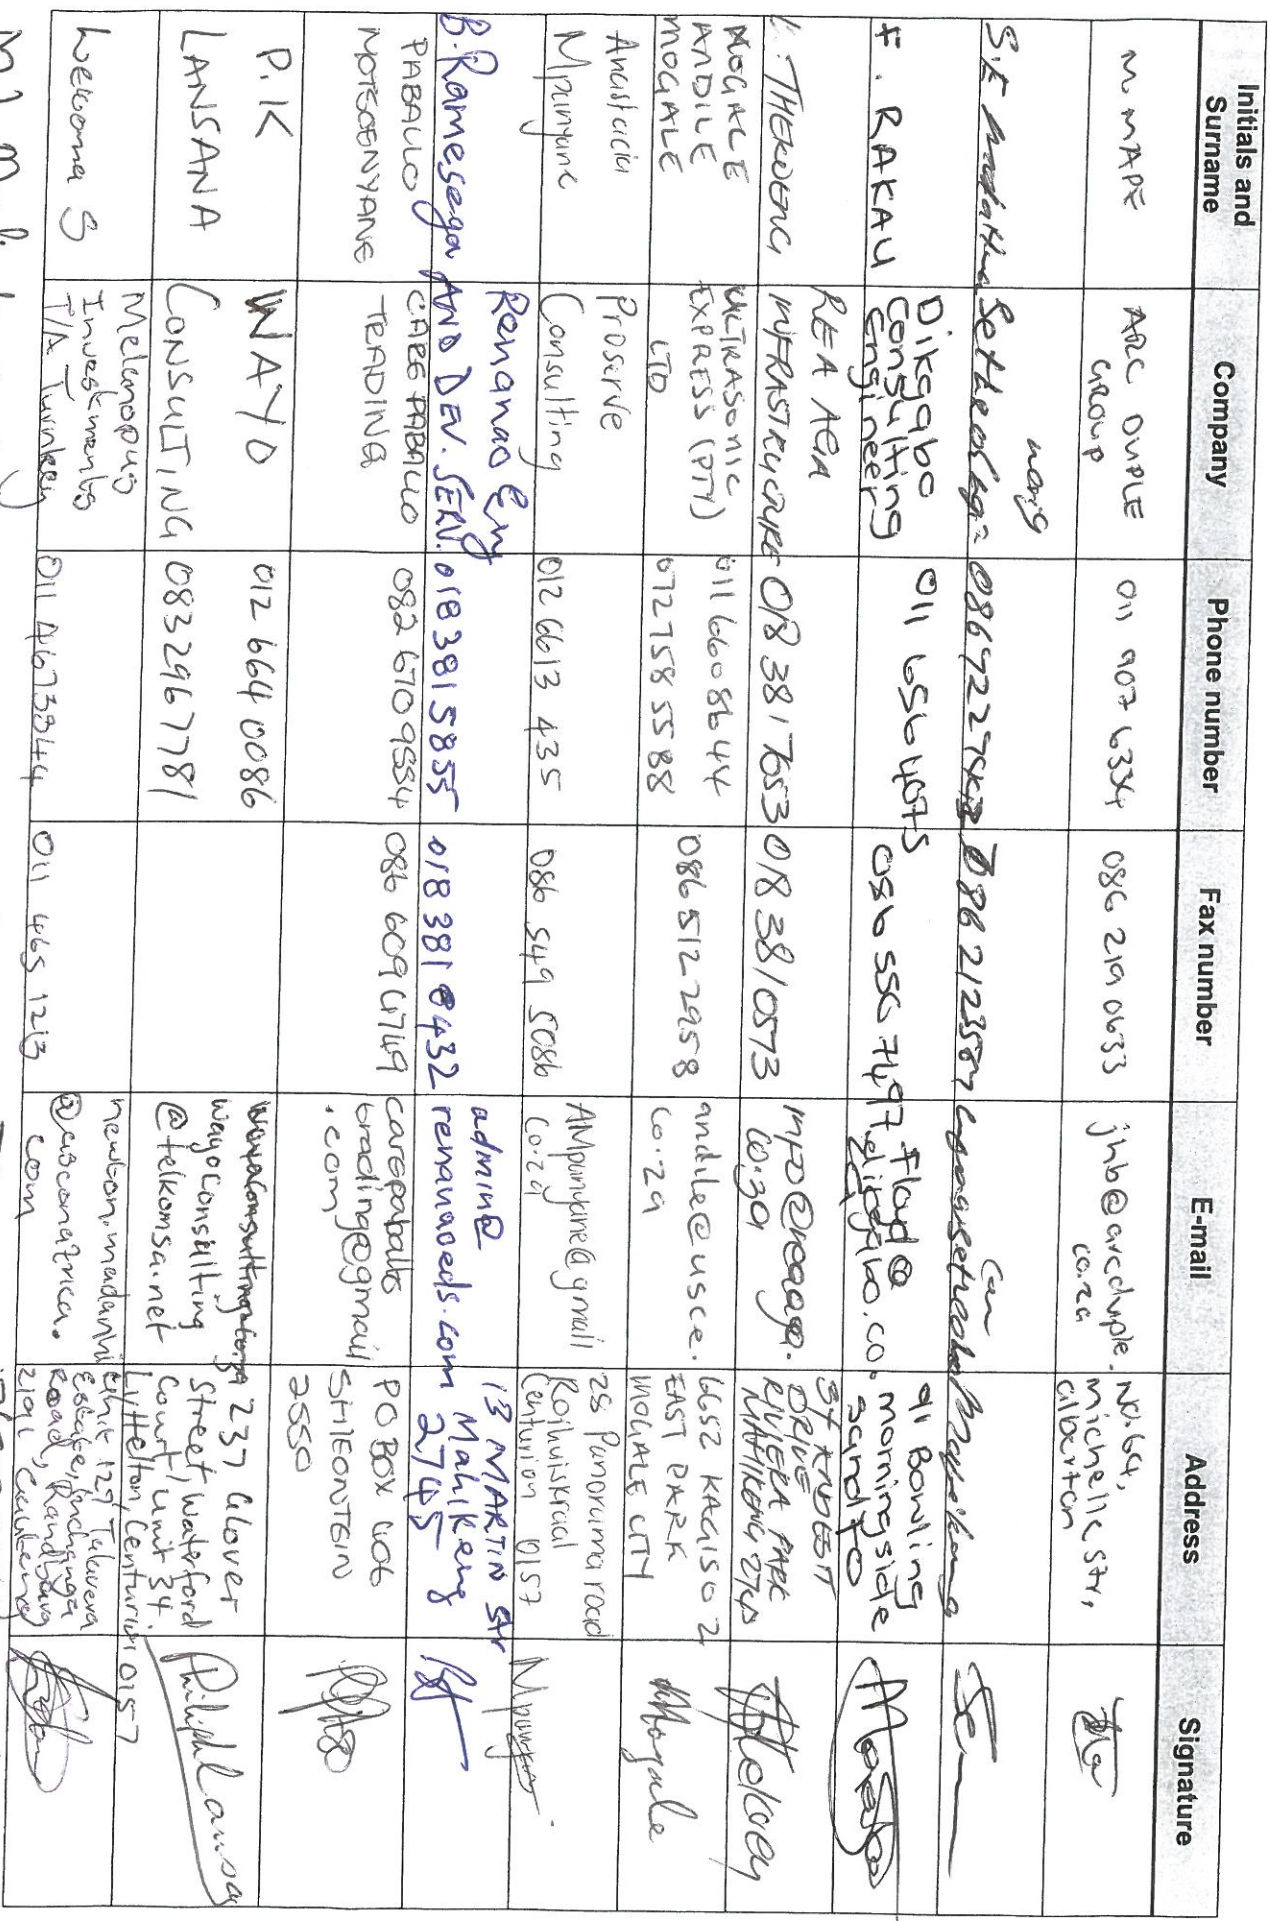 Initials and
Surname
Company
Phone number
Fax number
E-mail
Address
Signature
M. MAPE
ARC DUPLE
GROUP
011 907 6334
086 219 0633
jhb@arcduple.
co.za
No.64,
Michelle str,
alberton
S.E
F. RAKAU
Dikgabo
Consulting
Engineer
011 656 4075
086 556 7497
Floyd@
dikgabo.co.
91 Bowling
morningside
sandton
THEKWENG
REA AGA
INFRASTRUCTURE
018 381 7653
018 381 0573
info@reaaga.
co.za
DRIVE
RIVIERA PARK
MAFIKENG 2745
MOGALE
ANDILE
MOGALE
ULTRASONIC
EXPRESS (PTY)
LTD
011 660 8644
072 758 5588
086 512 2958
andile@usce.
co.za
6652 KAGISO 2
EAST PARK
MOGALE CITY
Anastacia
Mpunyane
Proserve
Consulting
012 6613 435
086 549 5086
AMpunyane@gmail
co.za
28 Panorama road
Roihuiskraal
Centurion 0157
B. Ramesega
Renanao Eng
AND DEV. SERV.
018 381 5855
018 381 8432
admin@
renanaoeds.com
13 MARTIN str
Mahikeng
2745
PABALLO
MOTSOENYANE
CARE PABALLO
TRADING
082 670 9554
086 609 4749
carepaballo
trading@gmail
.com
PO BOX 406
SHEONTEIN
2550
P.K
LANSANA
WAYO
CONSULTING
012 664 0086
0832967781
wayoconsulting
@telkomsa.net
237 Glover
Street, Waterford
Court, unit 34
Lyttelton, Centurion 0157
Welcome S
Melanopus
Investments
T/A Turnkey
011 4673344
011 465 1213
newton.madanhi
@casconafrica.
com
Unit 127 Talavera
Estate,
Road, Randburg
2191 Gauteng